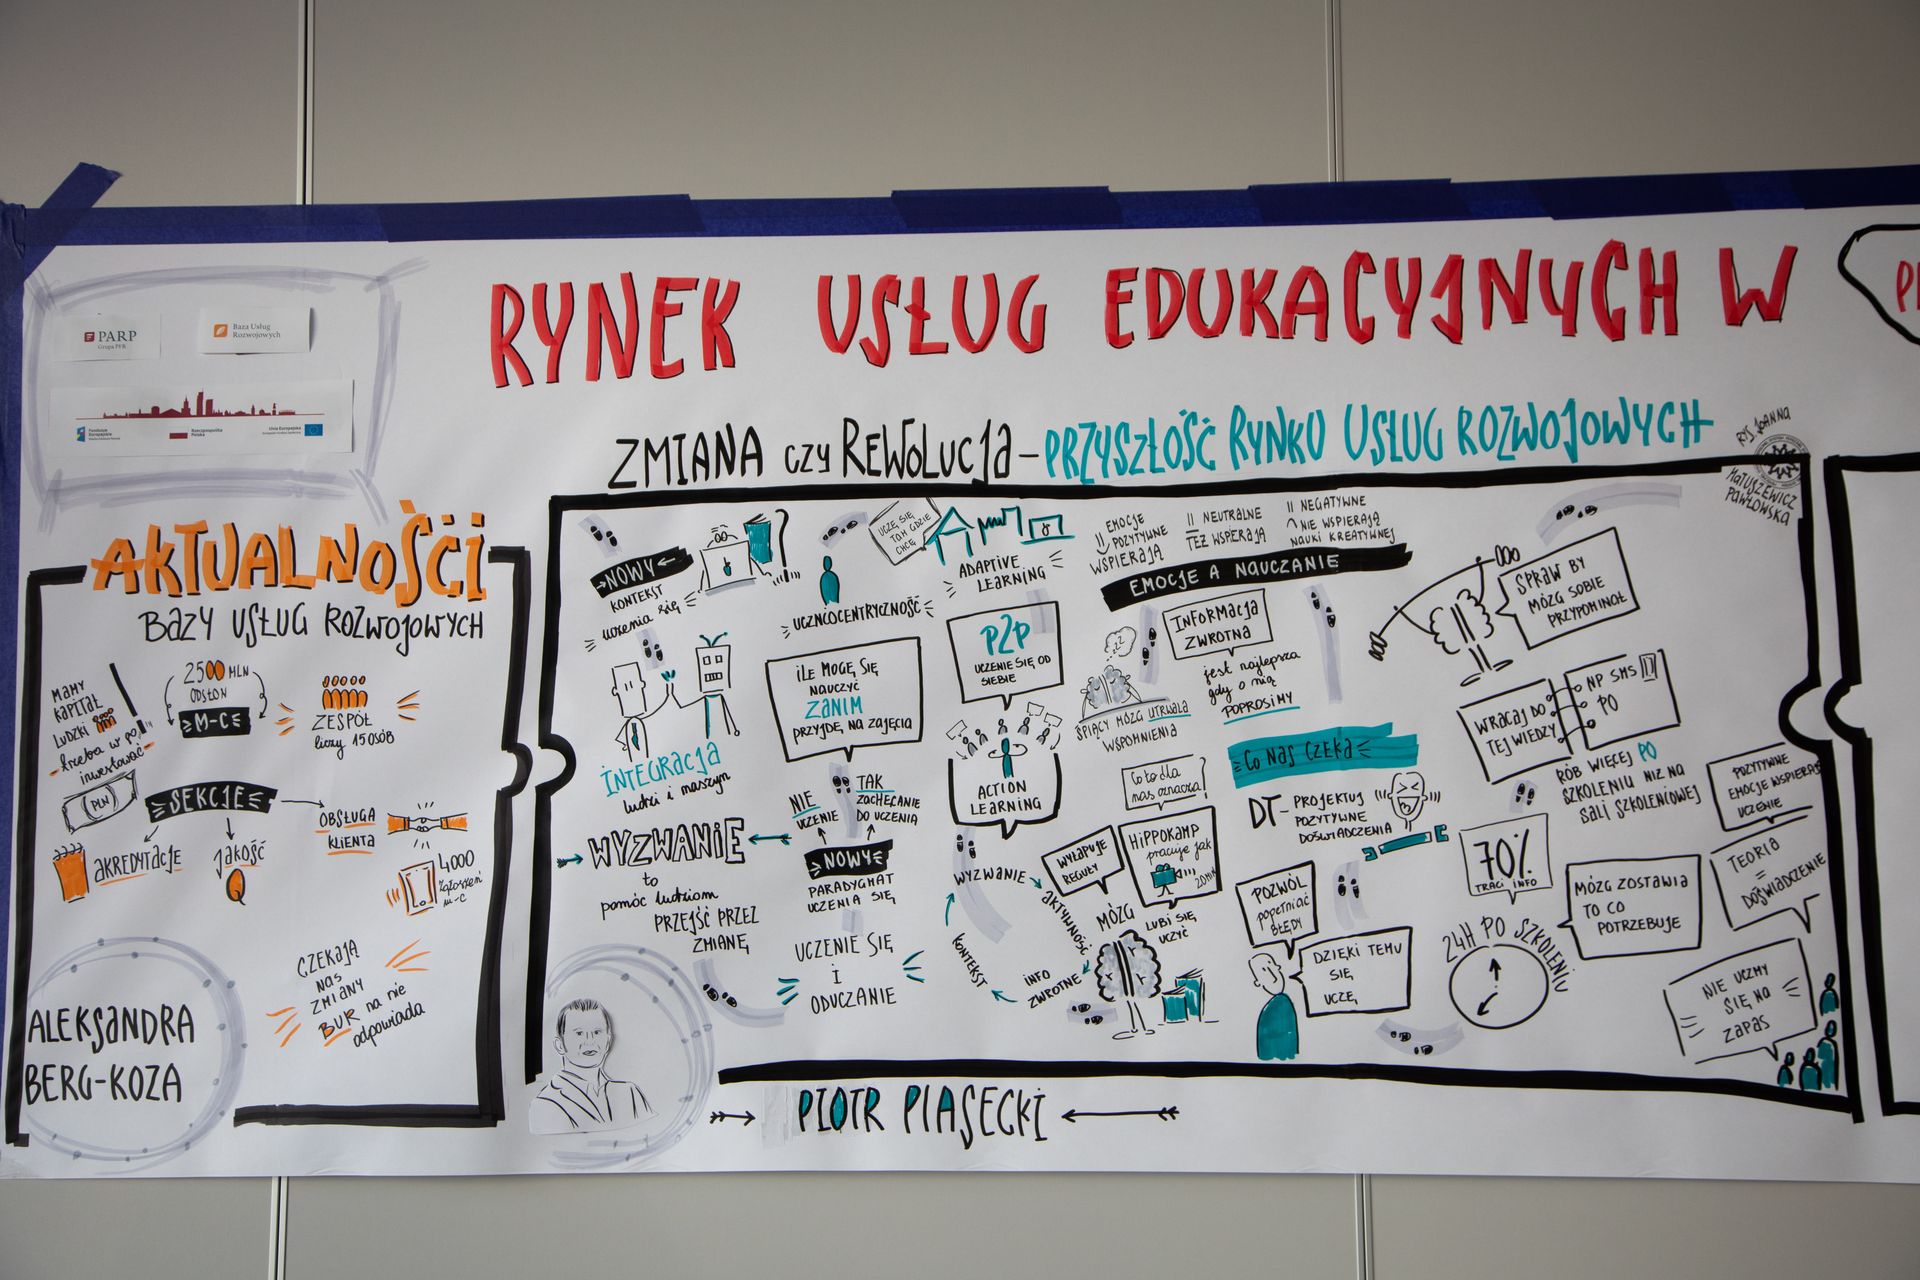 RYNEK USŁUG EDUKACYJNYCH W
PARP
Grupa PFR
Baza Usług
Rozwojowych
Fundusze
Europejskie
Rzeczpospolita
Polska
Unia Europejska
AKTUALNOŚCI
BAZY USŁUG ROZWOJOWYCH
MAMY
KAPITAŁ
LUDZKI
trzeba w
inwestować
PLN
2500 MLN
ODSŁON
M-C
ZESPÓŁ
liczy 15 OSÓB
SEKCJE
AKREDYTACJE
JAKOŚĆ
OBSŁUGA
KLIENTA
4000
zgłoszeń
m-c
CZEKAJĄ
NAS
ZMIANY
BUR na nie
odpowiada
ALEKSANDRA
BERG-KOZA
ZMIANA CZY REWOLUCJA – PRZYSZŁOŚĆ RYNKU USŁUG ROZWOJOWYCH
RYS. JOANNA
MATUSZEWICZ
PAWŁOWSKA
NOWY
KONTEKST
uczenia się
?
INTEGRACJA
ludzi i maszyn
WYZWANIE
to
pomóc ludziom
PRZEJŚĆ PRZEZ
ZMIANĘ
UCZĘ SIĘ
TAM GDZIE
CHCĘ
UCZNIOCENTRYCZNOŚĆ
ILE MOGĘ SIĘ
NAUCZYĆ
ZANIM
PRZYJDĘ NA ZAJĘCIA
NIE
UCZENIE
TAK
ZACHĘCANIE
DO UCZENIA
NOWY
PARADYGMAT
UCZENIA SIĘ
UCZENIE SIĘ
I
ODUCZANIE
ADAPTIVE
LEARNING
P2P
UCZENIE SIĘ OD
SIEBIE
ACTION
LEARNING
WYZWANIE
AKTYWNOŚĆ
INFO
ZWROTNE
KONTEKST
EMOCJE
POZYTYWNE
WSPIERAJĄ
NEUTRALNE
TEŻ WSPIERAJĄ
NEGATYWNE
NIE WSPIERAJĄ
NAUKI KREATYWNEJ
EMOCJE A NAUCZANIE
ZZZ
ŚPIĄCY MÓZG UTRWALA
WSPOMNIENIA
INFORMACJA
ZWROTNA
jest najlepsza
gdy o nią
POPROSIMY
Co to dla
nas oznacza?
WYŁAPUJE
REGUŁY
HIPPOKAMP
pracuje jak
20 min
MÓZG
LUBI SIĘ
UCZYĆ
CO NAS CZEKA
DT – PROJEKTUJ
POZYTYWNE
DOŚWIADCZENIA
POZWÓL
popełniać
BŁĘDY
DZIĘKI TEMU
SIĘ
UCZĘ
SPRAW BY
MÓZG SOBIE
PRZYPOMINAŁ
WRACAJ DO
TEJ WIEDZY
NP SMS
PO
RÓB WIĘCEJ PO
SZKOLENIU NIŻ NA
SALI SZKOLENIOWEJ
70%
TRACI INFO
24H PO SZKOLENIU
MÓZG ZOSTAWIA
TO CO
POTRZEBUJE
POZYTYWNE
EMOCJE WSPIERAJĄ
UCZENIE
TEORIA
=
DOŚWIADCZENIE
NIE UCZMY
SIĘ NA
ZAPAS
PIOTR PIASECKI